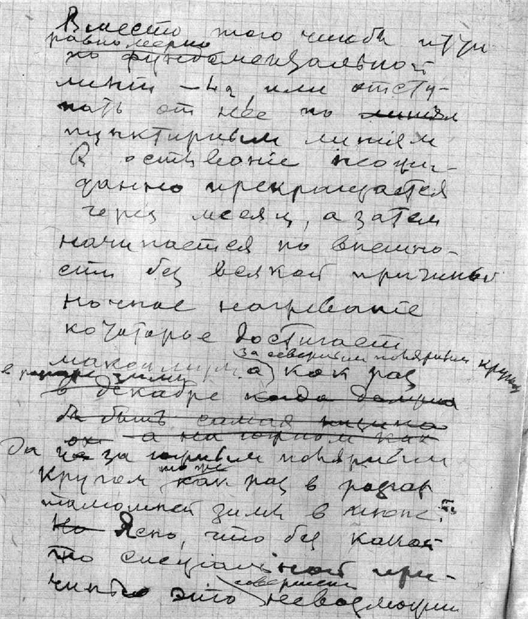 Вместо того чтобы идти
равномерно
по фундаментальной
линии —, или отсту-
пать от нее по линиям
пунктирным линиям
остывание неожи-
данно прекращается
через месяц, а затем
начинается по внешно-
сти без всякой причины
ночное нагревание
которое достигает
за северным полярным кругом
максимума а) как раз
в разгаре зимы
в декабре когда должна
бы быть самая
а на южном как
да за южным полярным
кругом то же как раз в разгар
тамошней зимы в июне.
Но Ясно, что без какой
то специальной при-
совершенно
чины это невозможно